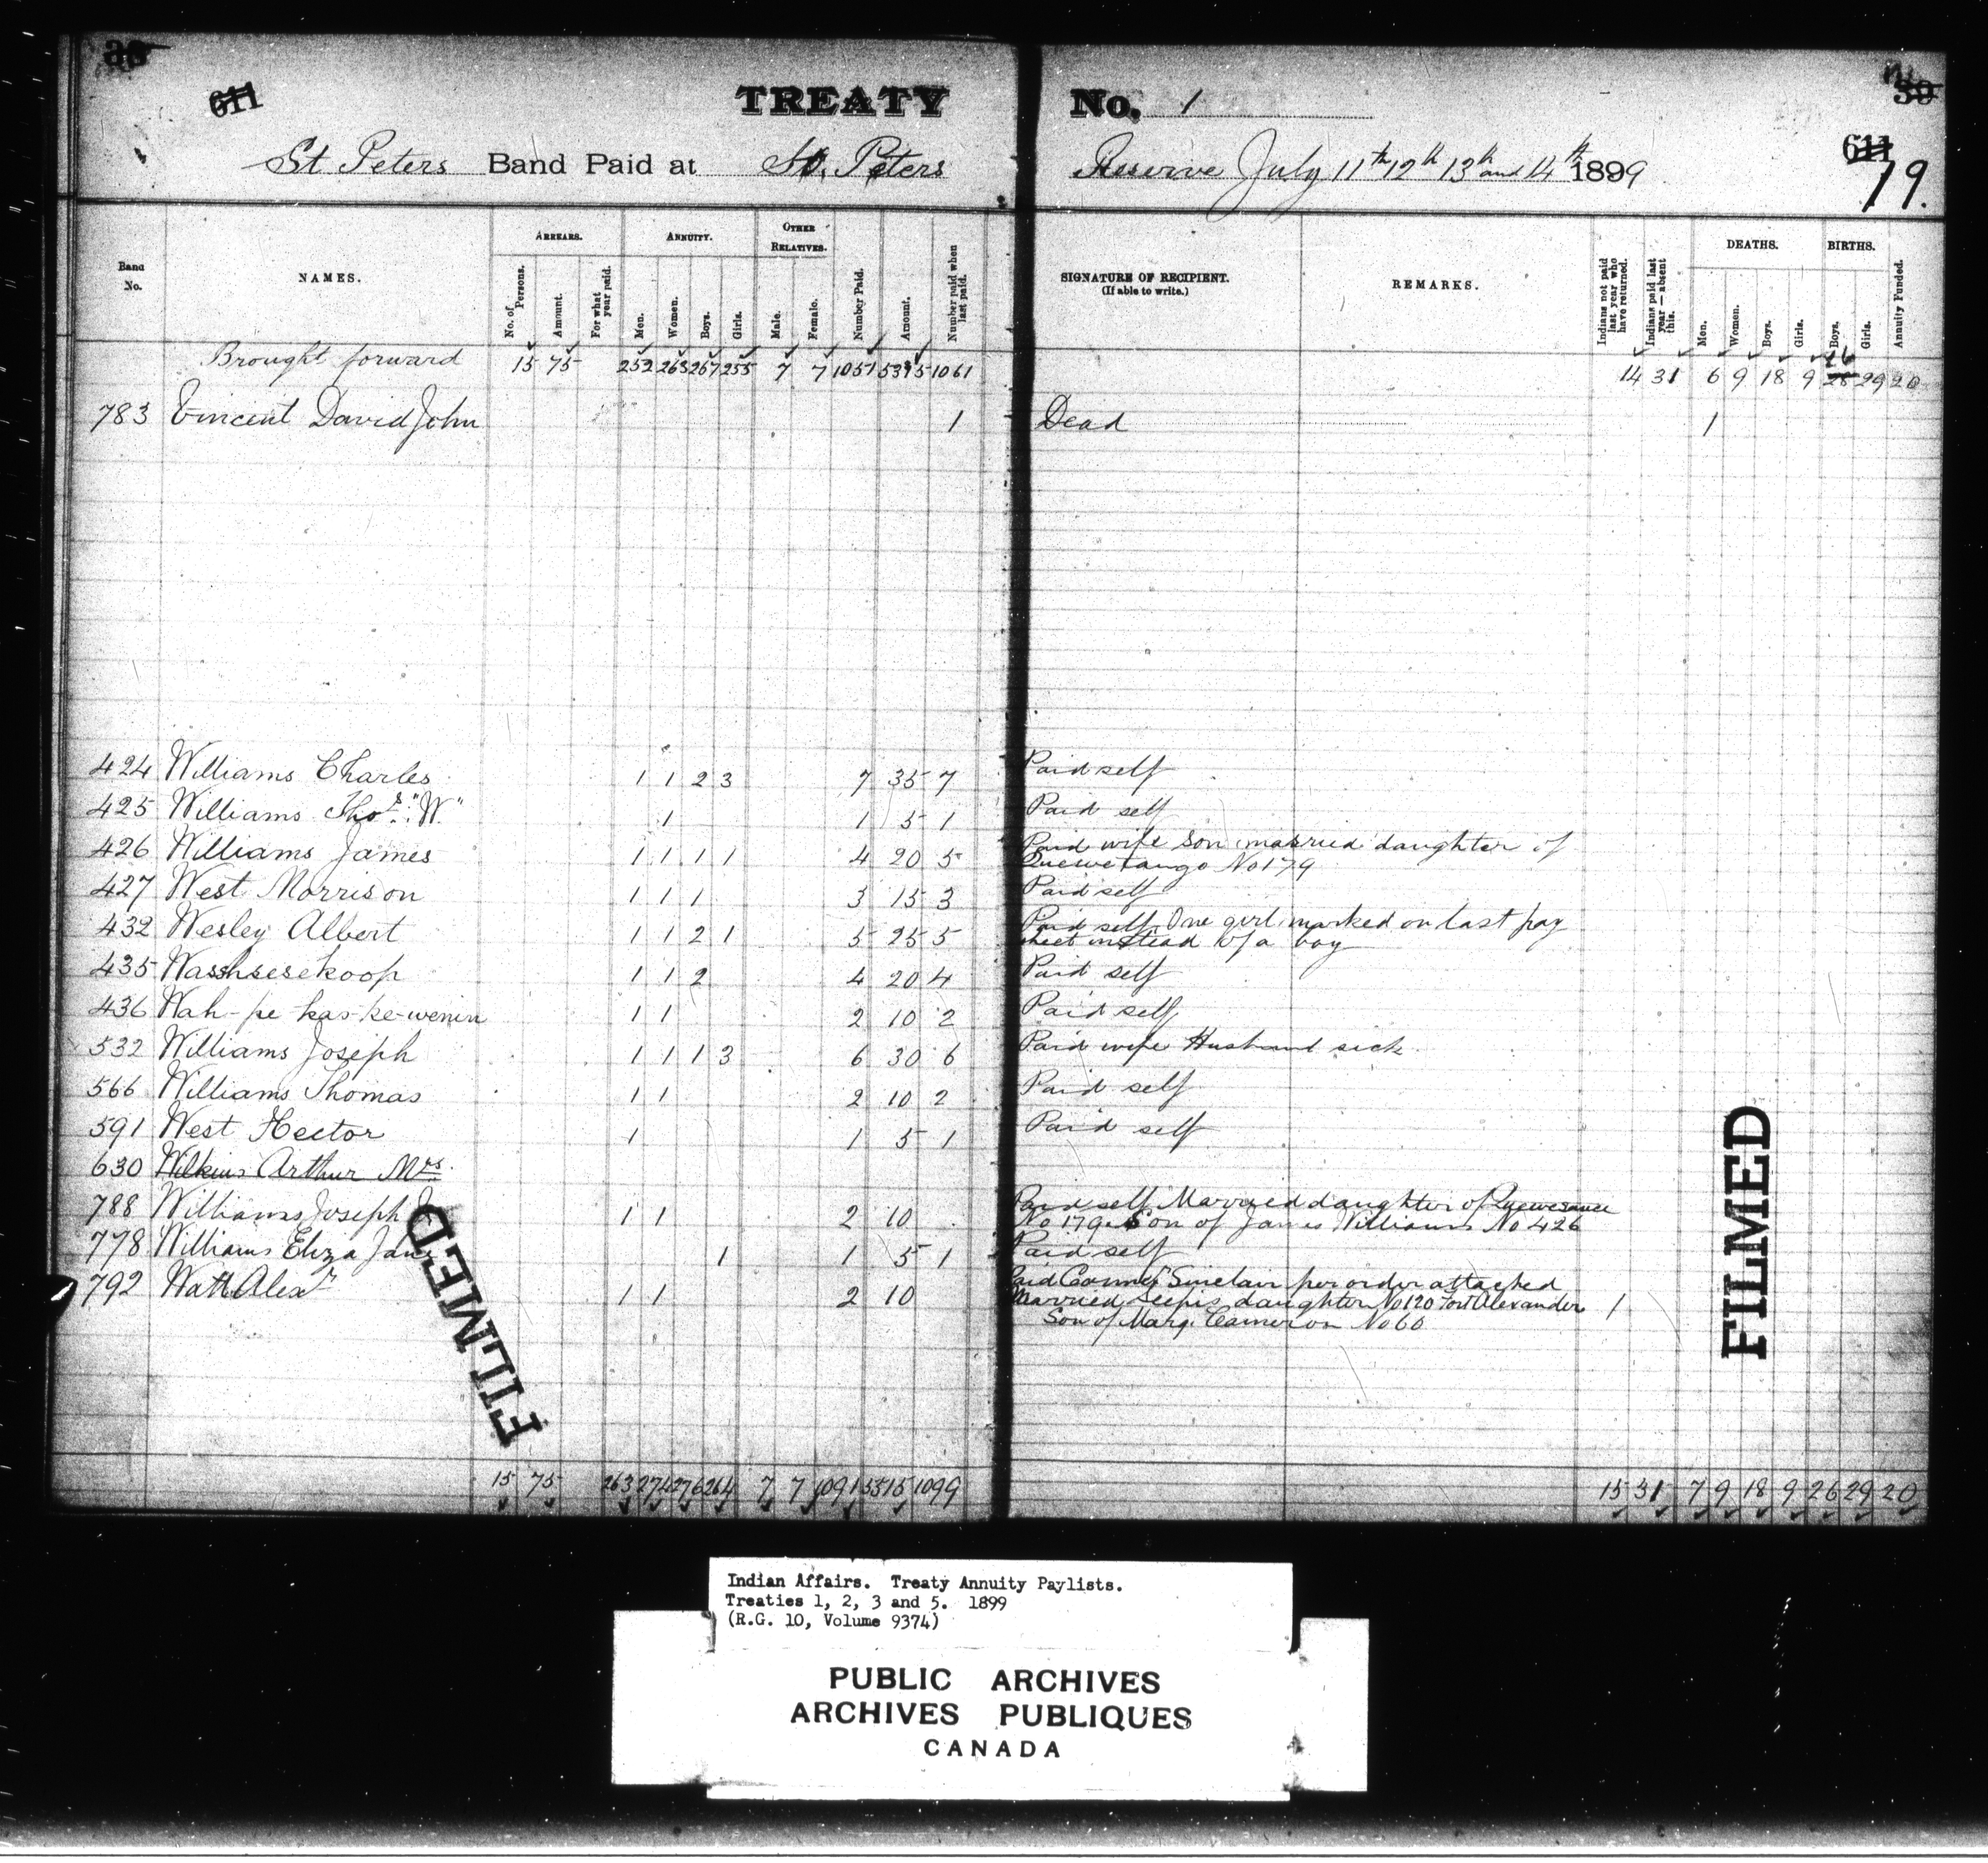 611
TREATY No. 1
39
611
St Peters Band Paid at St. Peters Reserve July 11th 12th 13th and 14th 1899
19.
Band No. NAMES. ARREARS. No. of Persons. Amount. For what year paid. ANNUITY. Men. Women. Boys. Girls. OTHER RELATIVES. Male. Female. Number Paid. Amount. Number paid when last paid. SIGNATURE OF RECIPIENT. (If able to write.) REMARKS. Indians not paid last year who have returned. Indians paid last year—absent this. DEATHS. Men. Women. Boys. Girls. BIRTHS. Boys. Girls. Annuity Funded.
Brought forward 15 75 252 263 267 255 7 7 1051 5315 1061 14 31 6 9 18 9 28 26 29 20
783 Vincent David John 1 Dead 1
424 Williams Charles 1 1 2 3 7 35 7 Paid self
425 Williams Thos. "W" 1 1 5 1 Paid self
426 Williams James 1 1 1 1 4 20 5 Paid wife son married daughter of
No 179
427 West Morrison 1 1 1 3 15 3 Paid self
432 Wesley Albert 1 1 2 1 5 25 5 Paid self. One girl marked on last pay
sheet instead of a boy
435 Wasshesekoop 1 1 2 4 20 4 Paid self
436 Wah-pe-kas-ke-wenin 1 1 2 10 2 Paid self
532 Williams Joseph 1 1 1 3 6 30 6 Paid wife Husband sick
566 Williams Thomas 1 1 2 10 2 Paid self
591 West Hector 1 1 5 1 Paid self
630 Wilkins Arthur Mrs.
788 Williams Joseph 1 1 2 10 Paid self Married daughter of
No 179. Son of James Williams No 426
778 Williams Eliza Jane 1 1 5 1 Paid self
792 Watt Alexr 1 1 2 10 Paid Sinclair per order attached
Married daughter No 120 Fort Alexander 1
Son of Marg. Cameron No 60
FILMED
FILMED
15 75 263 274 276 264 7 7 1091 5515 1099 15 31 7 9 18 9 26 29 20
Indian Affairs. Treaty Annuity Paylists.
Treaties 1, 2, 3 and 5. 1899
(R.G. 10, Volume 9374)
PUBLIC ARCHIVES
ARCHIVES PUBLIQUES
CANADA